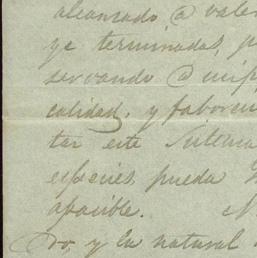 alcanzado a vale
ye terminadas, p
servando a mi
calidad, y favore
tar este Sistema
especies, pueda
apacible.
ro, y la natural